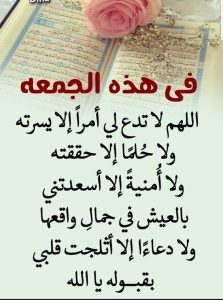 فى هذه الجمعه
اللهم لا تدع لي أمراً إلا يسرته
ولا حُلمًا إلا حققته
ولا أُمنيةً إلا أسعدتني
بالعيش في جمالِ واقعها
ولا دعاءًا إلا أثلجت قلبي
بقبـوله يا الله